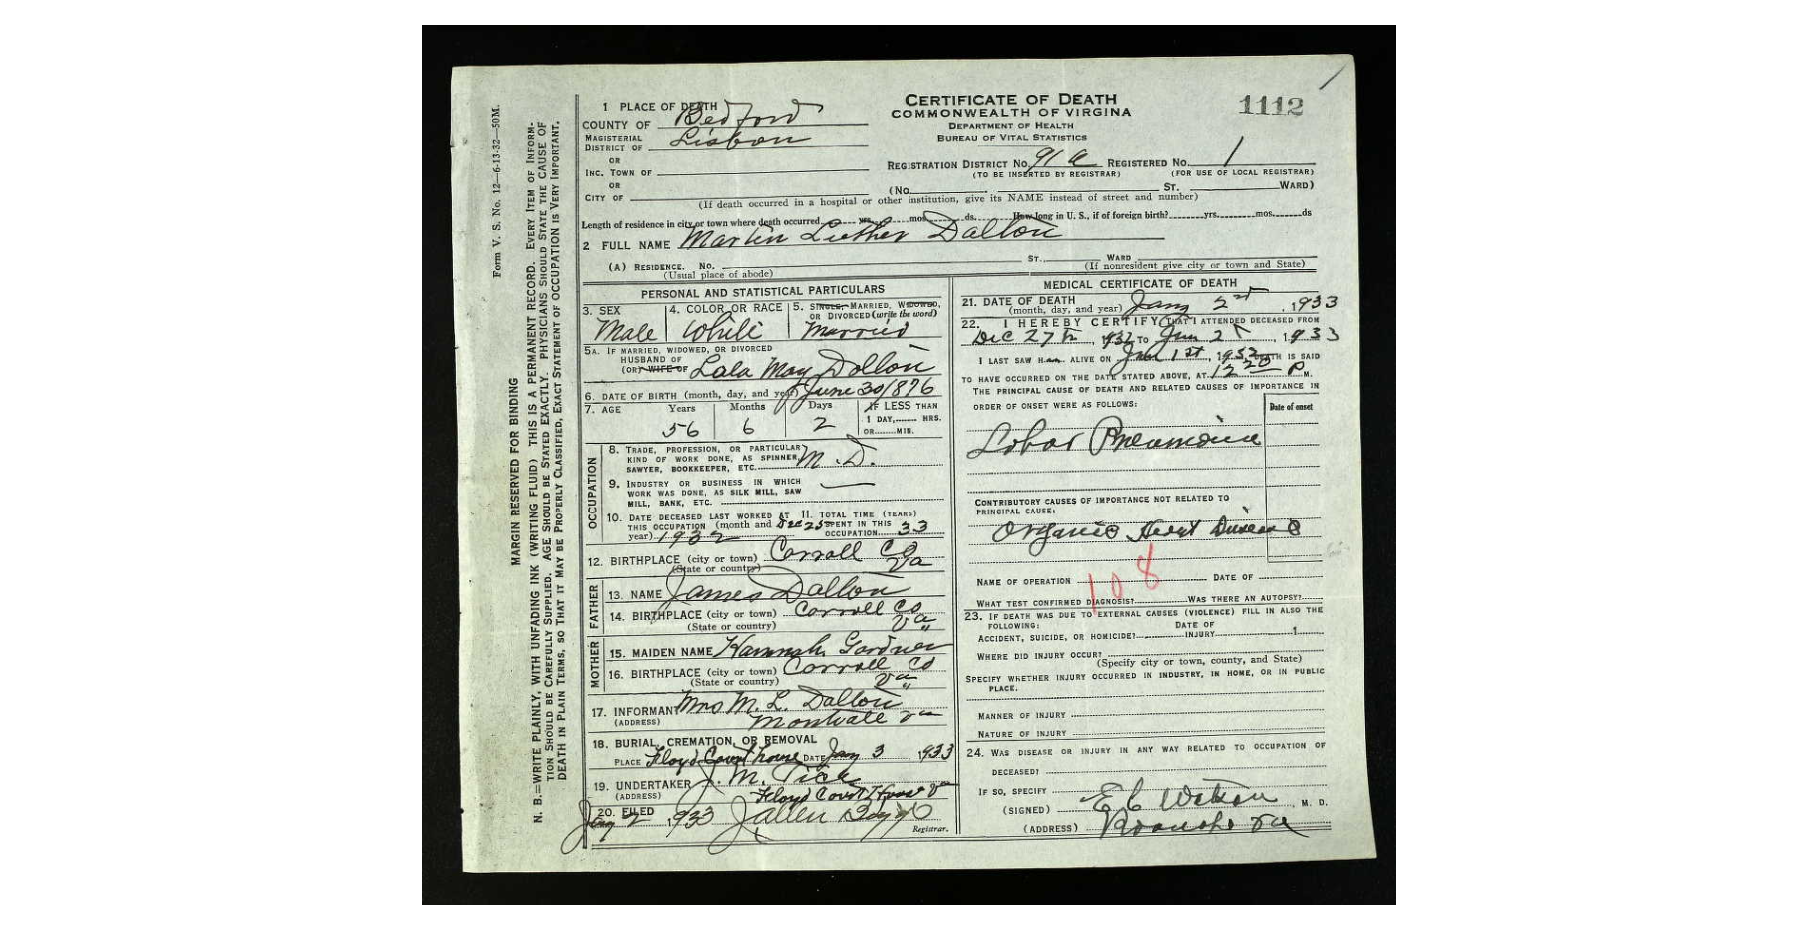 Form V. S. No. 12—6-13-32—50M.
MARGIN RESERVED FOR BINDING
N. B.—WRITE PLAINLY, WITH UNFADING INK (WRITING FLUID) THIS IS A PERMANENT RECORD. EVERY ITEM OF INFORM-
TION SHOULD BE CAREFULLY SUPPLIED. AGE SHOULD BE STATED EXACTLY. PHYSICIANS SHOULD STATE THE CAUSE OF
DEATH IN PLAIN TERMS, SO THAT IT MAY BE PROPERLY CLASSIFIED. EXACT STATEMENT OF OCCUPATION IS VERY IMPORTANT.
CERTIFICATE OF DEATH
COMMONWEALTH OF VIRGINA
DEPARTMENT OF HEALTH
BUREAU OF VITAL STATISTICS
1112
1 PLACE OF DEATH
COUNTY OF Bedford
MAGISTERIAL
DISTRICT OF Lisbon
OR
INC. TOWN OF
OR
CITY OF
REGISTRATION DISTRICT NO. 91 a REGISTERED NO. 1
(TO BE INSERTED BY REGISTRAR) (FOR USE OF LOCAL REGISTRAR)
(No. ST. WARD)
(If death occurred in a hospital or other institution, give its NAME instead of street and number)
Length of residence in city or town where death occurred yrs. mos. ds. How long in U. S., if of foreign birth? yrs. mos. ds
2 FULL NAME Martin Luther Dalton
(A) RESIDENCE. No. ST. WARD
(Usual place of abode) (If nonresident give city or town and State)
PERSONAL AND STATISTICAL PARTICULARS
3. SEX Male
4. COLOR OR RACE White
5. SINGLE, MARRIED, WIDOWED,
OR DIVORCED (write the word)
Married
5A. IF MARRIED, WIDOWED, OR DIVORCED
HUSBAND OF
(OR) WIFE OF Lala May Dalton
6. DATE OF BIRTH (month, day, and year) June 30 1876
7. AGE Years Months Days IF LESS THAN
56 6 2 1 DAY, HRS.
OR MIN.
OCCUPATION
8. TRADE, PROFESSION, OR PARTICULAR
KIND OF WORK DONE, AS SPINNER,
SAWYER, BOOKKEEPER, ETC. M. D.
9. INDUSTRY OR BUSINESS IN WHICH
WORK WAS DONE, AS SILK MILL, SAW
MILL, BANK, ETC.
10. DATE DECEASED LAST WORKED AT 11. TOTAL TIME (YEARS)
THIS OCCUPATION (month and Dec 25 SPENT IN THIS
year) 1932 OCCUPATION 33
12. BIRTHPLACE (city or town) Carroll Co
(State or country) Va
FATHER
13. NAME James Dalton
14. BIRTHPLACE (city or town) Carroll Co
(State or country) Va
MOTHER
15. MAIDEN NAME Hannah Gardner
16. BIRTHPLACE (city or town) Carroll Co
(State or country) Va
17. INFORMANT Mrs M. L. Dalton
(ADDRESS) Montvale Va
18. BURIAL, CREMATION, OR REMOVAL
PLACE Floyd Court house DATE Jany 3 1933
19. UNDERTAKER J. M.
(ADDRESS) Floyd Court House Va
20. FILED Jany 2 1933
Registrar.
MEDICAL CERTIFICATE OF DEATH
21. DATE OF DEATH
(month, day, and year) Jany 2 , 1933
22. I HEREBY CERTIFY, THAT I ATTENDED DECEASED FROM
Dec 27th, 1932 TO Jan 2, 1933
I LAST SAW H ALIVE ON Jan 1st, 1932 DEATH IS SAID
TO HAVE OCCURRED ON THE DATE STATED ABOVE, AT 12 20 P M.
THE PRINCIPAL CAUSE OF DEATH AND RELATED CAUSES OF IMPORTANCE IN
ORDER OF ONSET WERE AS FOLLOWS: Date of onset
Lobar Pneumonia
CONTRIBUTORY CAUSES OF IMPORTANCE NOT RELATED TO
PRINCIPAL CAUSE:
Organic Heart Disease
108
NAME OF OPERATION DATE OF
WHAT TEST CONFIRMED DIAGNOSIS? WAS THERE AN AUTOPSY?
23. IF DEATH WAS DUE TO EXTERNAL CAUSES (VIOLENCE) FILL IN ALSO THE
FOLLOWING:
ACCIDENT, SUICIDE, OR HOMICIDE? DATE OF INJURY 1
WHERE DID INJURY OCCUR?
(Specify city or town, county, and State)
SPECIFY WHETHER INJURY OCCURRED IN INDUSTRY, IN HOME, OR IN PUBLIC
PLACE.
MANNER OF INJURY
NATURE OF INJURY
24. WAS DISEASE OR INJURY IN ANY WAY RELATED TO OCCUPATION OF
DECEASED?
IF SO, SPECIFY
(SIGNED) E C Watson, M. D.
(ADDRESS) Roanoke Va